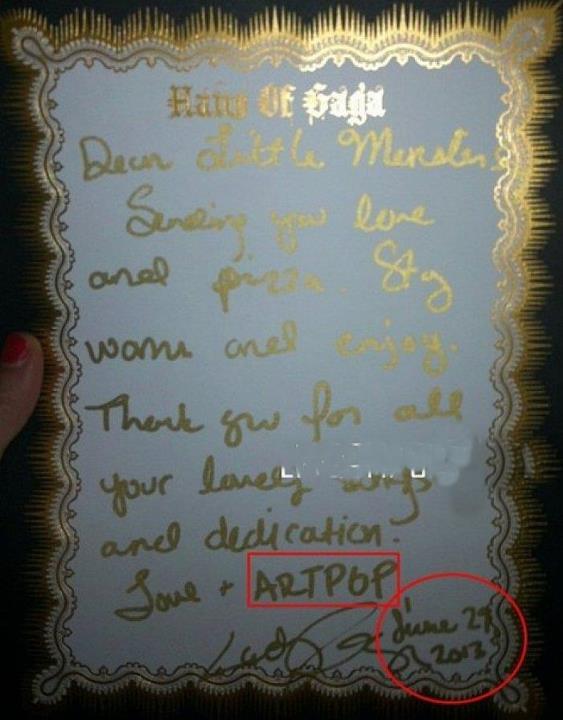 Haus Of Gaga
Dear Little Monsters
Sending you love
and pizza. Stay
warm and enjoy.
Thank you for all
your lovely songs
and dedication.
Love + ARTPOP
June 29,
2013